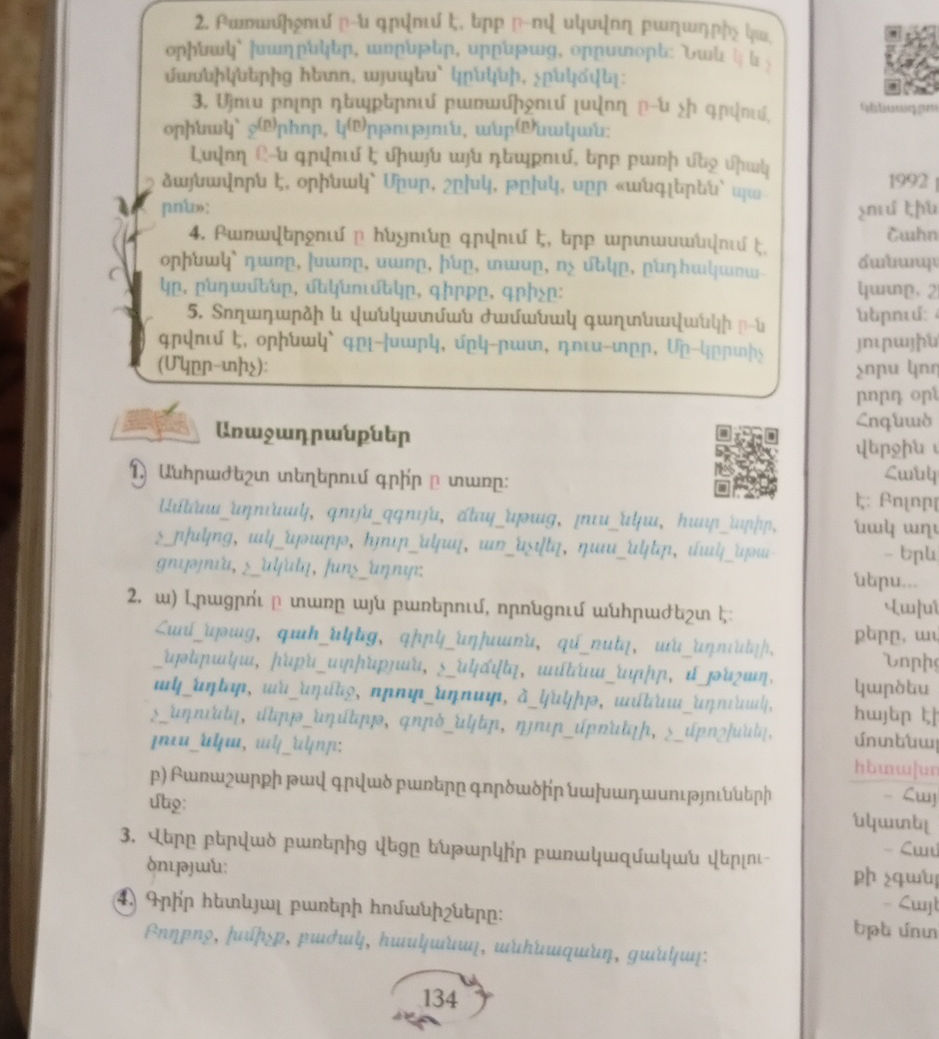 2. Բառամիջում ը-ն գրվում է, երբ ը-ով սկսվող բաղադրիչ կա,
օրինակ՝ խաղընկեր, առընթեր, սրընթաց, օրըստօրե: Նաև կ և չ
մասնիկներից հետո, այսպես՝ կընկնի, չընկճվել:
3. Մյուս բոլոր դեպքերում բառամիջում լսվող ը-ն չի գրվում,
օրինակ՝ չ(ը)րհոր, կ(ը)րթություն, անը(ը)նական:
Լսվող Ը-ն գրվում է միայն այն դեպքում, երբ բառի մեջ միակ
ձայնավորն է, օրինակ՝ Մըսր, շըխկ, թըխկ, սըր «անգլերեն՝ պա-
րոն»:
4. Բառավերջում ը հնչյունը գրվում է, երբ արտասանվում է,
օրինակ՝ դառը, խառը, սառը, հինը, տասը, ոչ մեկը, ընդհակառա-
կը, ընդամենը, մեկնումեկը, գիրքը, գրիչը:
5. Տողադարձի և վանկատման ժամանակ գաղտնավանկի ը-ն
գրվում է, օրինակ՝ գըլ-խարկ, մըկ-րատ, դուս-տըր, Մը-կըրտիչ
(Մկըր-տիչ):
Առաջադրանքներ
1. Անհրաժեշտ տեղերում գրի՛ր ը տառը:
Ամենա_նդունակ, գույն_զգույն, ճեպ_նթաց, լուս_նկա, հայր_նտիր,
չ_ղիկոց, ակ_նթարթ, հյուր_նկալ, առ_նչվել, դաս_նկեր, մակ_նթա-
ցություն, չ_նկնել, խոչ_նդոտ:
2. ա) Լրացրո՛ւ ը տառը այն բառերում, որոնցում անհրաժեշտ է:
Համ_նթաց, գահ_նկեց, գիրկ_նդխառն, զմ_ռսել, ան_նդունելի,
_նթերակա, ինքն_ստինքյան, չ_նկճվել, ամենա_նտիր, մ_թնշաղ,
ակ_նդետ, ան_նդմեջ, որոտ_նդոստ, ձ_կնկիթ, ամենա_նդունակ,
չ_նդունել, մերթ_նդմերթ, գործ_նկեր, դյուր_մբռնելի, չ_մբոշխնել,
լուս_նկա, ակ_նկոր:
բ) Բառաշարքի թավ գրված բառերը գործածի՛ր նախադասությունների
մեջ:
3. Վերը բերված բառերից վեցը ենթարկի՛ր բառակազմական վերլու-
ծության:
4. Գրի՛ր հետևյալ բառերի հոմանիշները:
Բողբոջ, խմիչք, բաժակ, հասկանալ, անհնազանդ, ցանկալ:
134
1992
չում էին
ճանապ
կատը, 2
ներում:
յուրային
չորս կող
Հոգնած
վերջին
Հանկ
է: Բոլորը
- Երև
ներս...
Վախ
քերը, ա
Նորից
կարծես
հայեր է
մոտենա
- Հայ
նկատել
- Համ
քի չգան
- Հայե
Եթե մոտ